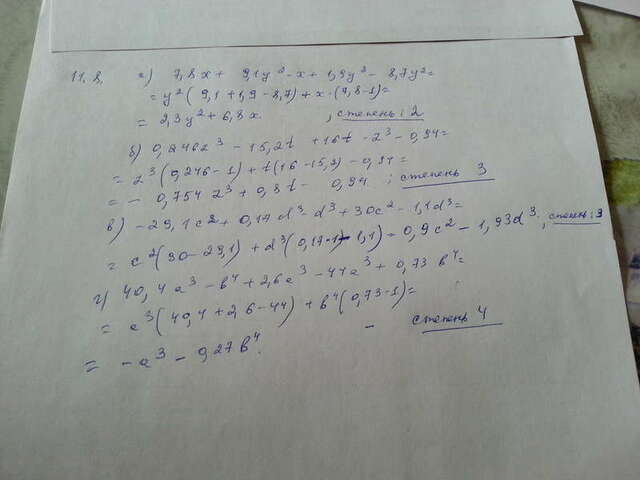 11.8. а) 7,8x + 9,1y² - x + 1,9y² - 8,7y² =
= y²(9,1 + 1,9 - 8,7) + x·(7,8-1) =
= 2,3y² + 6,8x. ; степень: 2
б) 0,246z³ - 15,2t + 16t - z³ - 0,94 =
= z³(0,246 - 1) + t(16 - 15,2) - 0,94 =
= - 0,754 z³ + 0,8t - 0,94 ; степень 3
в) -29,1c² + 0,17d³ - d³ + 30c² - 1,1d³ =
= c²(30 - 29,1) + d³(0,17 - 1 - 1,1) = 0,9c² - 1,93d³ ; степень: 3
г) 40,4a³ - b⁴ + 2,6a³ - 44a³ + 0,73b⁴ =
= a³(40,4 + 2,6 - 44) + b⁴(0,73 - 1) =
= -a³ - 0,27b⁴. - степень 4